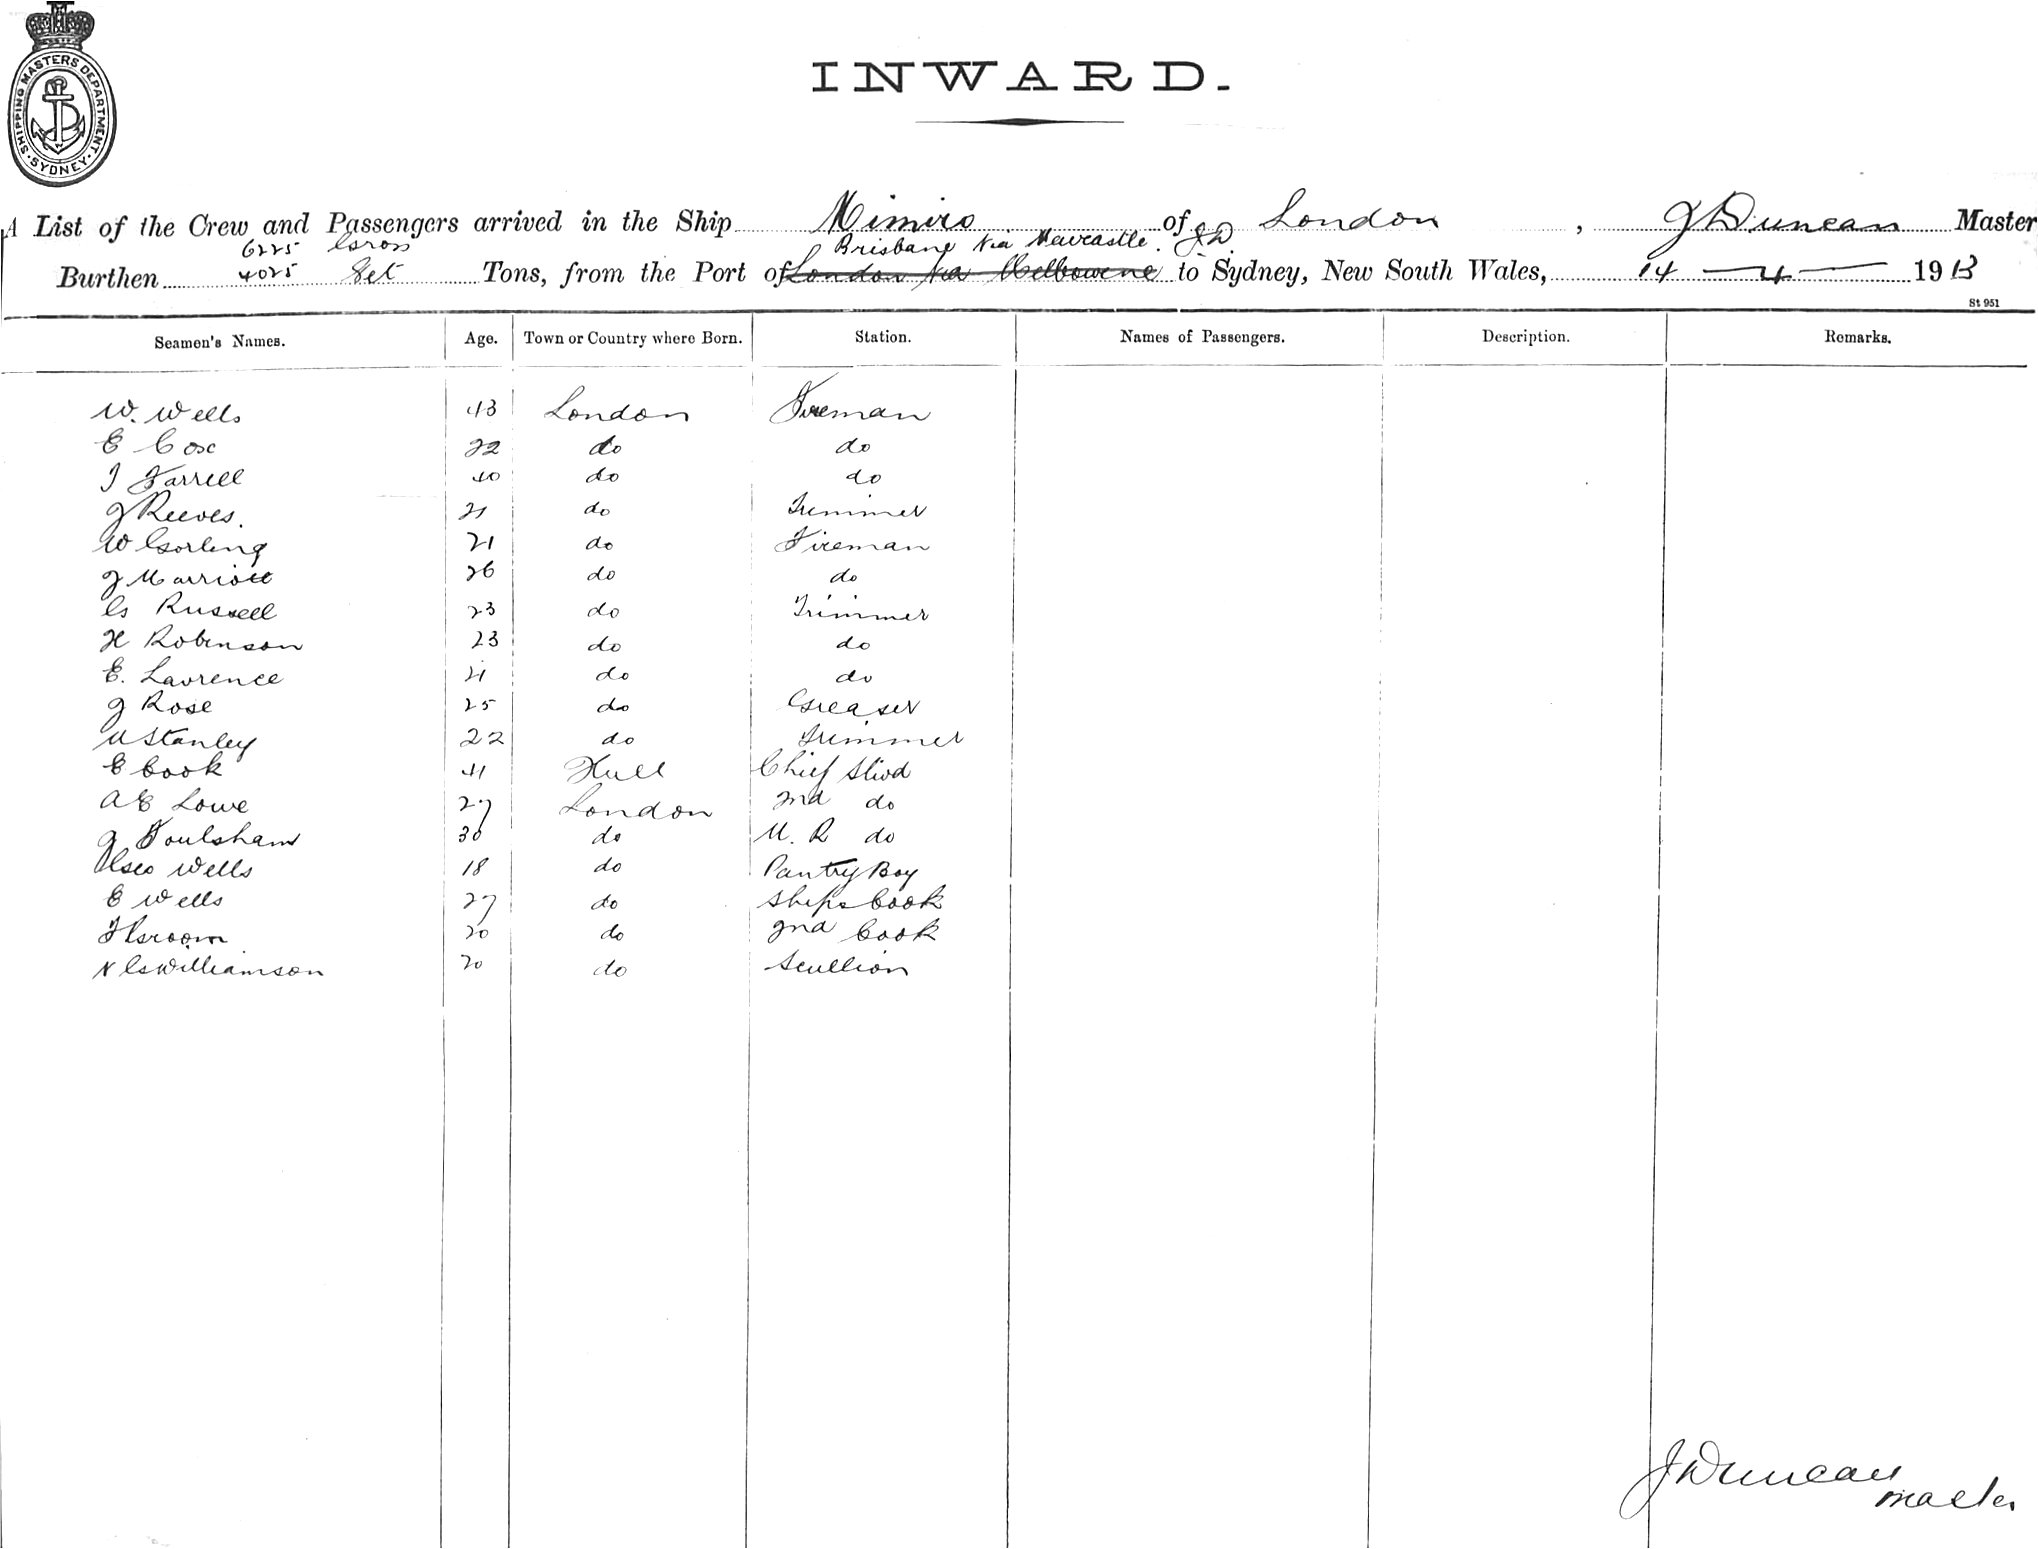 SHIPPING MASTERS DEPARTMENT
SYDNEY
INWARD.
A List of the Crew and Passengers arrived in the Ship Mimiro of London, J Duncan Master
6225 Gross Brisbane via Newcastle. J.D.
Burthen 4025 Net Tons, from the Port of London via Melbourne to Sydney, New South Wales, 14 – 4 – 1913
St 951
Seamen's Names. Age. Town or Country where Born. Station. Names of Passengers. Description. Remarks.
W. Wells 43 London Fireman
E Cox 22 do do
J Farrell 40 do do
J Reeves. 21 do Trimmer
W Gorling 21 do Fireman
J Marriott 26 do do
G Russell 23 do Trimmer
H Robinson 23 do do
E. Lavrence 21 do do
J Rose 25 do Greaser
W Stanley 22 do Trimmer
E Cook 41 Hull Chief Stwd
A E Lowe 27 London 2nd do
J Foulsham 30 do M. R do
Geo Wells 18 do Pantry Boy
E Wells 27 do Ships Cook
20 do 2nd Cook
Williamson 20 do Scullion
J Duncan
Master